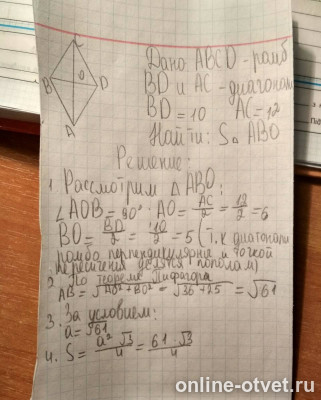 C
B O D
A
Дано: ABCD - ромб
BD и AC - диагонали
BD = 10 AC = 12
Найти: S△ ABO
Решение:
1. Рассмотрим △ ABO:
∠AOB = 90° AO = AC/2 = 12/2 = 6
BO = BD/2 = 10/2 = 5 (т.к диагонали
ромба перпендикулярны и точкой
пересичения делятся пополам)
2. По теореме Пифагора
AB = √AO² + BO² = √36 + 25 = √61
3. За условием:
a = √61
4. S = a²·√3/4 = 61·√3/4
online-otvet.ru